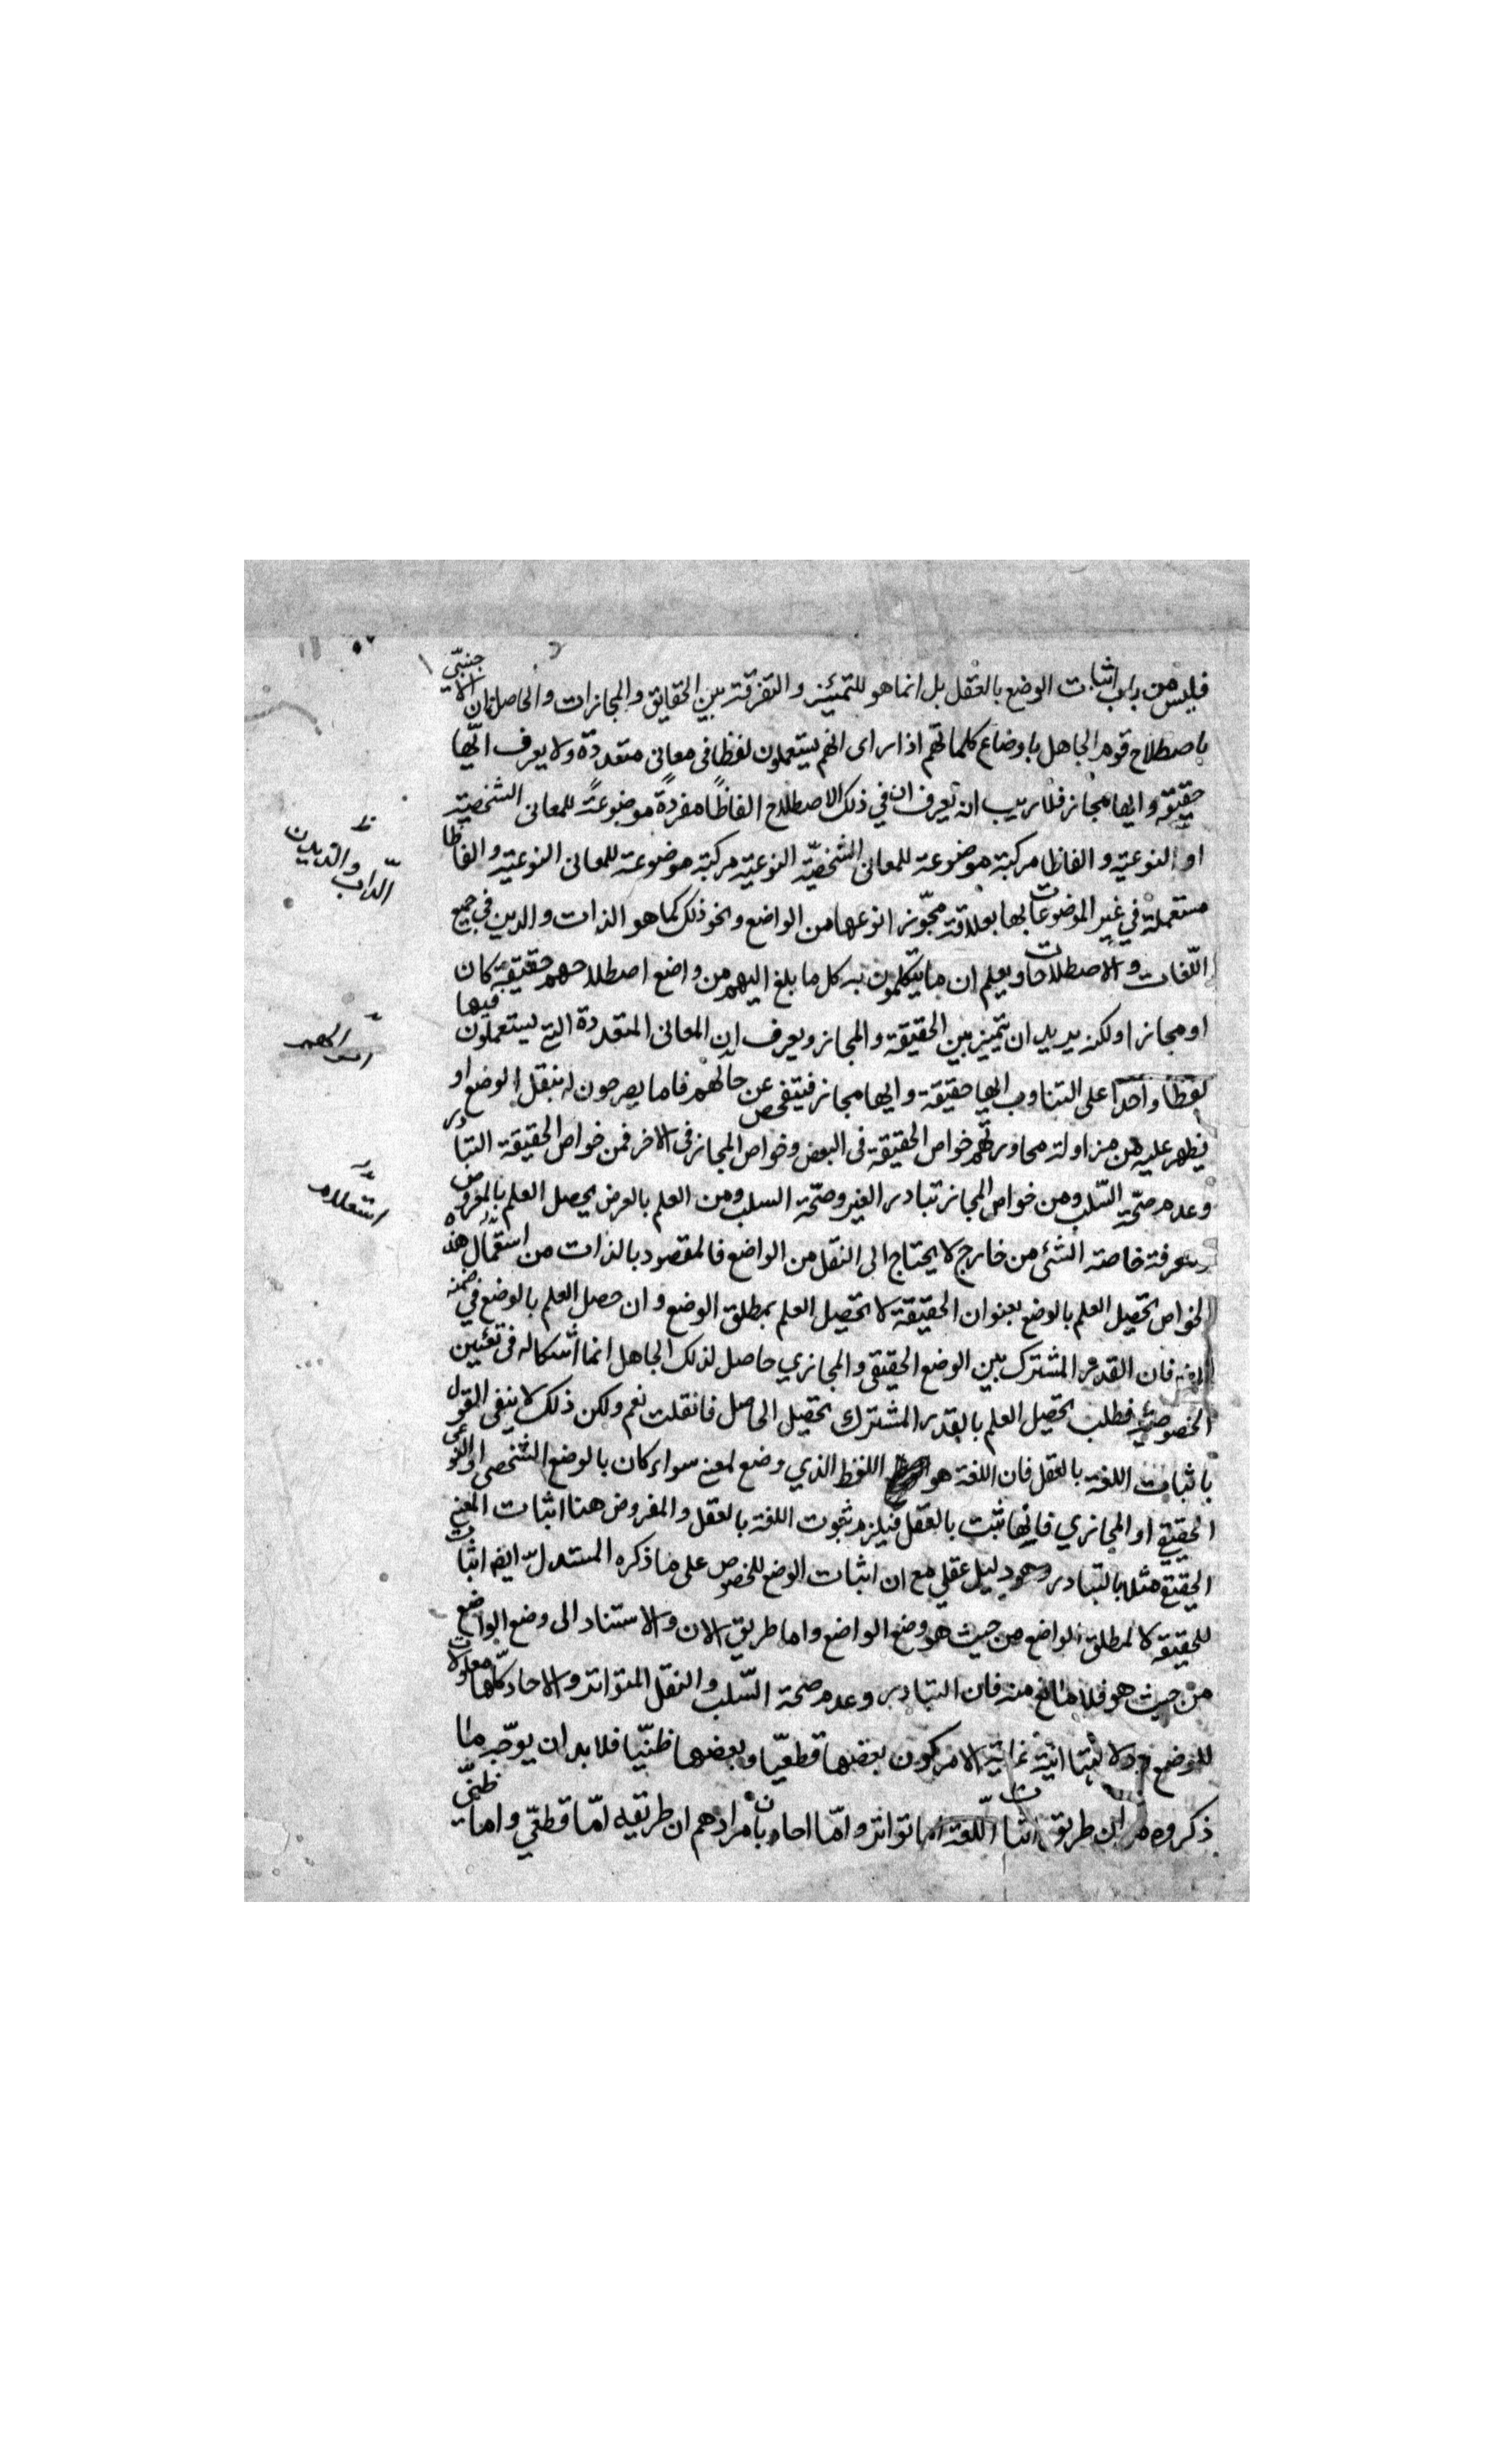 فليس من باب اثبات الوضع بالعقل بل انما هو للتميّز والتفرقة بين الحقايق والمجازات والحاصل ان الاجنبّى
باصطلاح قوم الجاهل باوضاع كلماتهم اذا راى انهم يستعملون لفظا فى معانى متعددة ولا يعرف ايّها
حقيقة وايها مجاز فلا ريب انه يعرف ان في ذلك الاصطلاح الفاظًا مفردةً موضوعةً للمعانى الشخصيّة
او النوعية والفاظا مركبة موضوعة للمعانى الشخصيّة النوعيّة مركبة موضوعة للمعانى النوعية والفاظا
مستعملة في غير الموضوعات لها بعلاقة مجوّز انوعها من الواضع ونحو ذلك كما هو الذات والدين في جميع
اللّغات والاصطلاحات ويعلم ان ما يتكلمون به كل ما بلغ اليهم من واضع اصطلاحهم حقيقة كان
او مجازا ولكنه يريد ان يتميز بين الحقيقة والمجاز ويعرف ان المعانى المتعددة التي يستعملون فيها
لفظا واحدا على التناوب ايها حقيقة وايها مجاز فيتفحص عن حالهم فاما يصرحون له بنقل الوضع او
يظهر عليه من مزاولة محاوراتهم خواص الحقيقة فى البعض وخواص المجاز فى الاخر فمن خواص الحقيقة التبادر
وعدم صحّة السّلب ومن خواص المجاز تبادر الغير وصحّة السلب ومن العلم بالعرض يحصل العلم بالمعروض
ومعرفة خاصة الشئ من خارج لا يحتاج الى النقل من الواضع فالمقصود بالذات من استعمال هذه
الخواص تحصيل العلم بالوضع بعنوان الحقيقة لا تحصيل العلم بمطلق الوضع وان حصل العلم بالوضع في ضمنه
فان القدر المشترك بين الوضع الحقيقى والمجازي حاصل لذلك الجاهل انما اشكاله فى تعيين
الخصوصيّة فطلب تحصيل العلم بالقدر المشترك تحصيل الحاصل فان قلت نعم ولكن ذلك لا ينفى القول
باثبات اللغة بالعقل فان اللغة هو اللفظ الذي وضع لمعنى سواء كان بالوضع الشخصى او النوعى
الحقيقي او المجازي فايّها ثبت بالعقل فيلزم ثبوت اللغة بالعقل والمفروض هنا اثبات المعنى
الحقيقي مثلا بالتبادر وهو دليل عقلي مع ان اثبات الوضع للخصوص على ما ذكره المستدلّ ايضا اثبات
للحقيقة لا لمطلق الواضع من حيث هو وضع الواضع واما طريق الان والاستناد الى وضع الواضع
من حيث هو فلا مانع منه فان التبادر وعدم صحة السّلب والنقل المتواتر والاحاد كلّها معلولات
للوضع انيّة غاية الامر كون بعضها قطعيّا وبعضها ظنيّا فلا بد ان يوجّه ما
ذكروه من ان طريق اثبات اللّغة اما تواتر وامّا احاد بان مرادهم ان طريقه امّا قطعّي واما ظنّى
الدّاب والديدن
استعلام